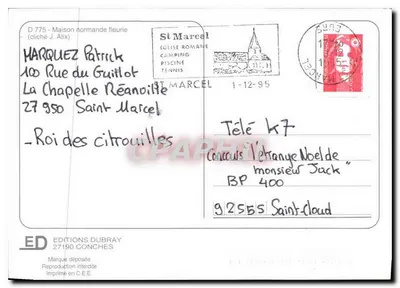 D 775 - Maison normande fleurie
(cliché J. Alix)
MARQUEZ Patrick
100 Rue du Guillot
La Chapelle Réanville
27 950 Saint Marcel
- Roi des citrouilles
St Marcel
EGLISE ROMANE
CAMPING
PISCINE
TENNIS
MARCEL 1-12-95
Télé K7
Concours "l'étrange Noel de
monsieur Jack"
BP 400
92555 Saint-Cloud
ED EDITIONS DUBRAY
27190 CONCHES
Marque déposée
Reproduction interdite
Imprimé en C.E.E.